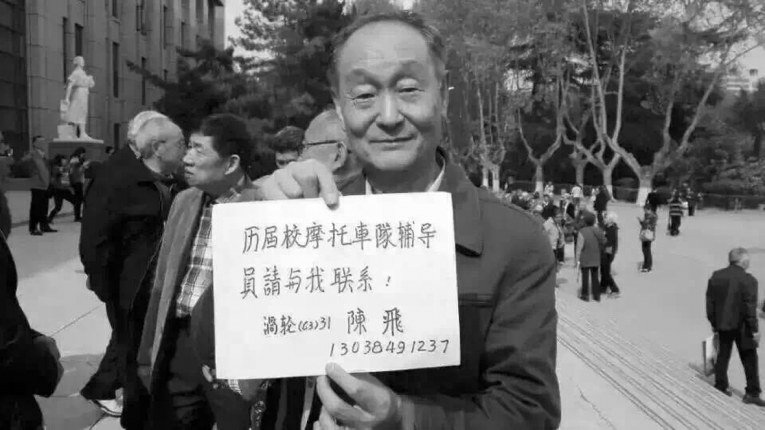 历届校摩托車隊辅导
員請与我联系！
渦轮(63)31 陳飛
13038491237